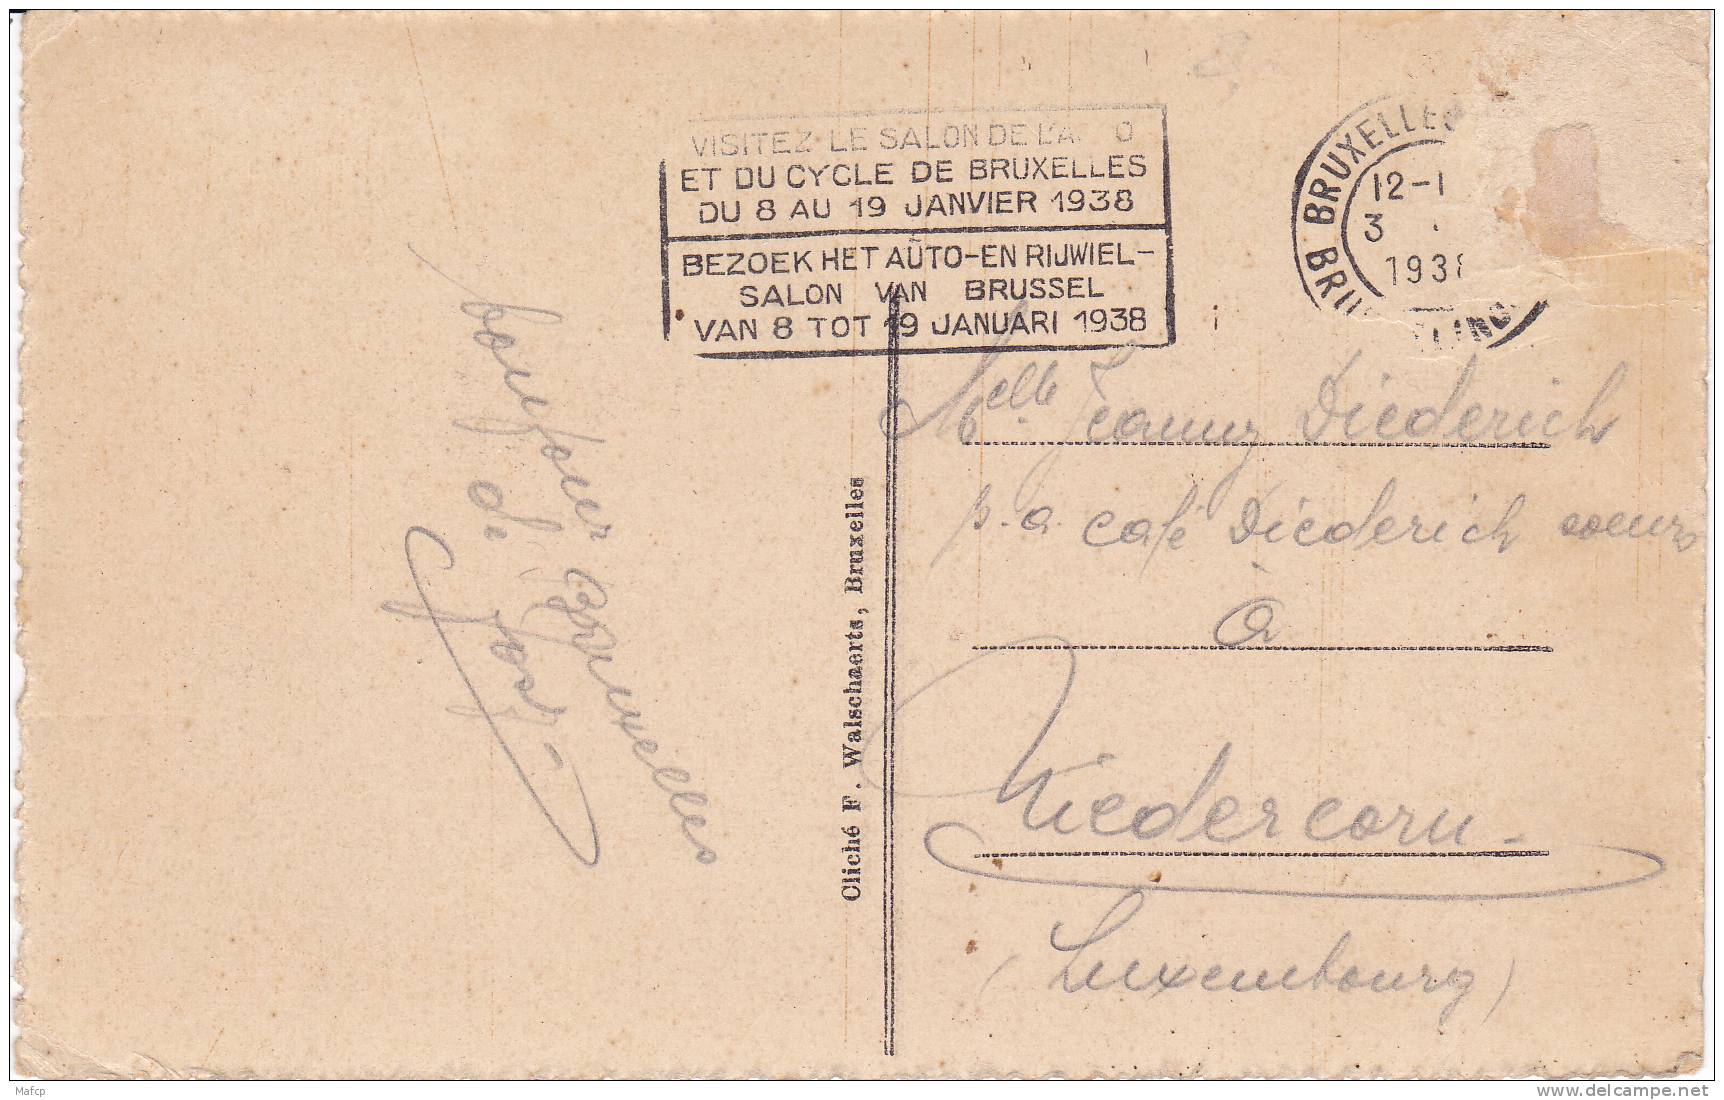 VISITEZ LE SALON DE L'A O
ET DU CYCLE DE BRUXELLES
DU 8 AU 19 JANVIER 1938
BEZOEK HET AUTO-EN RIJWIEL-
SALON VAN BRUSSEL
VAN 8 TOT 19 JANUARI 1938
BRUXELLES
12-1
3
1938
bonjour
de
Bruxelles
Cliché F. Walschaerts, Bruxelles
Melle Jeanny Diederich
p.a. café Diederich soeurs
à
Niedercorn-
(Luxembourg)
Mafcp
www.delcampe.net